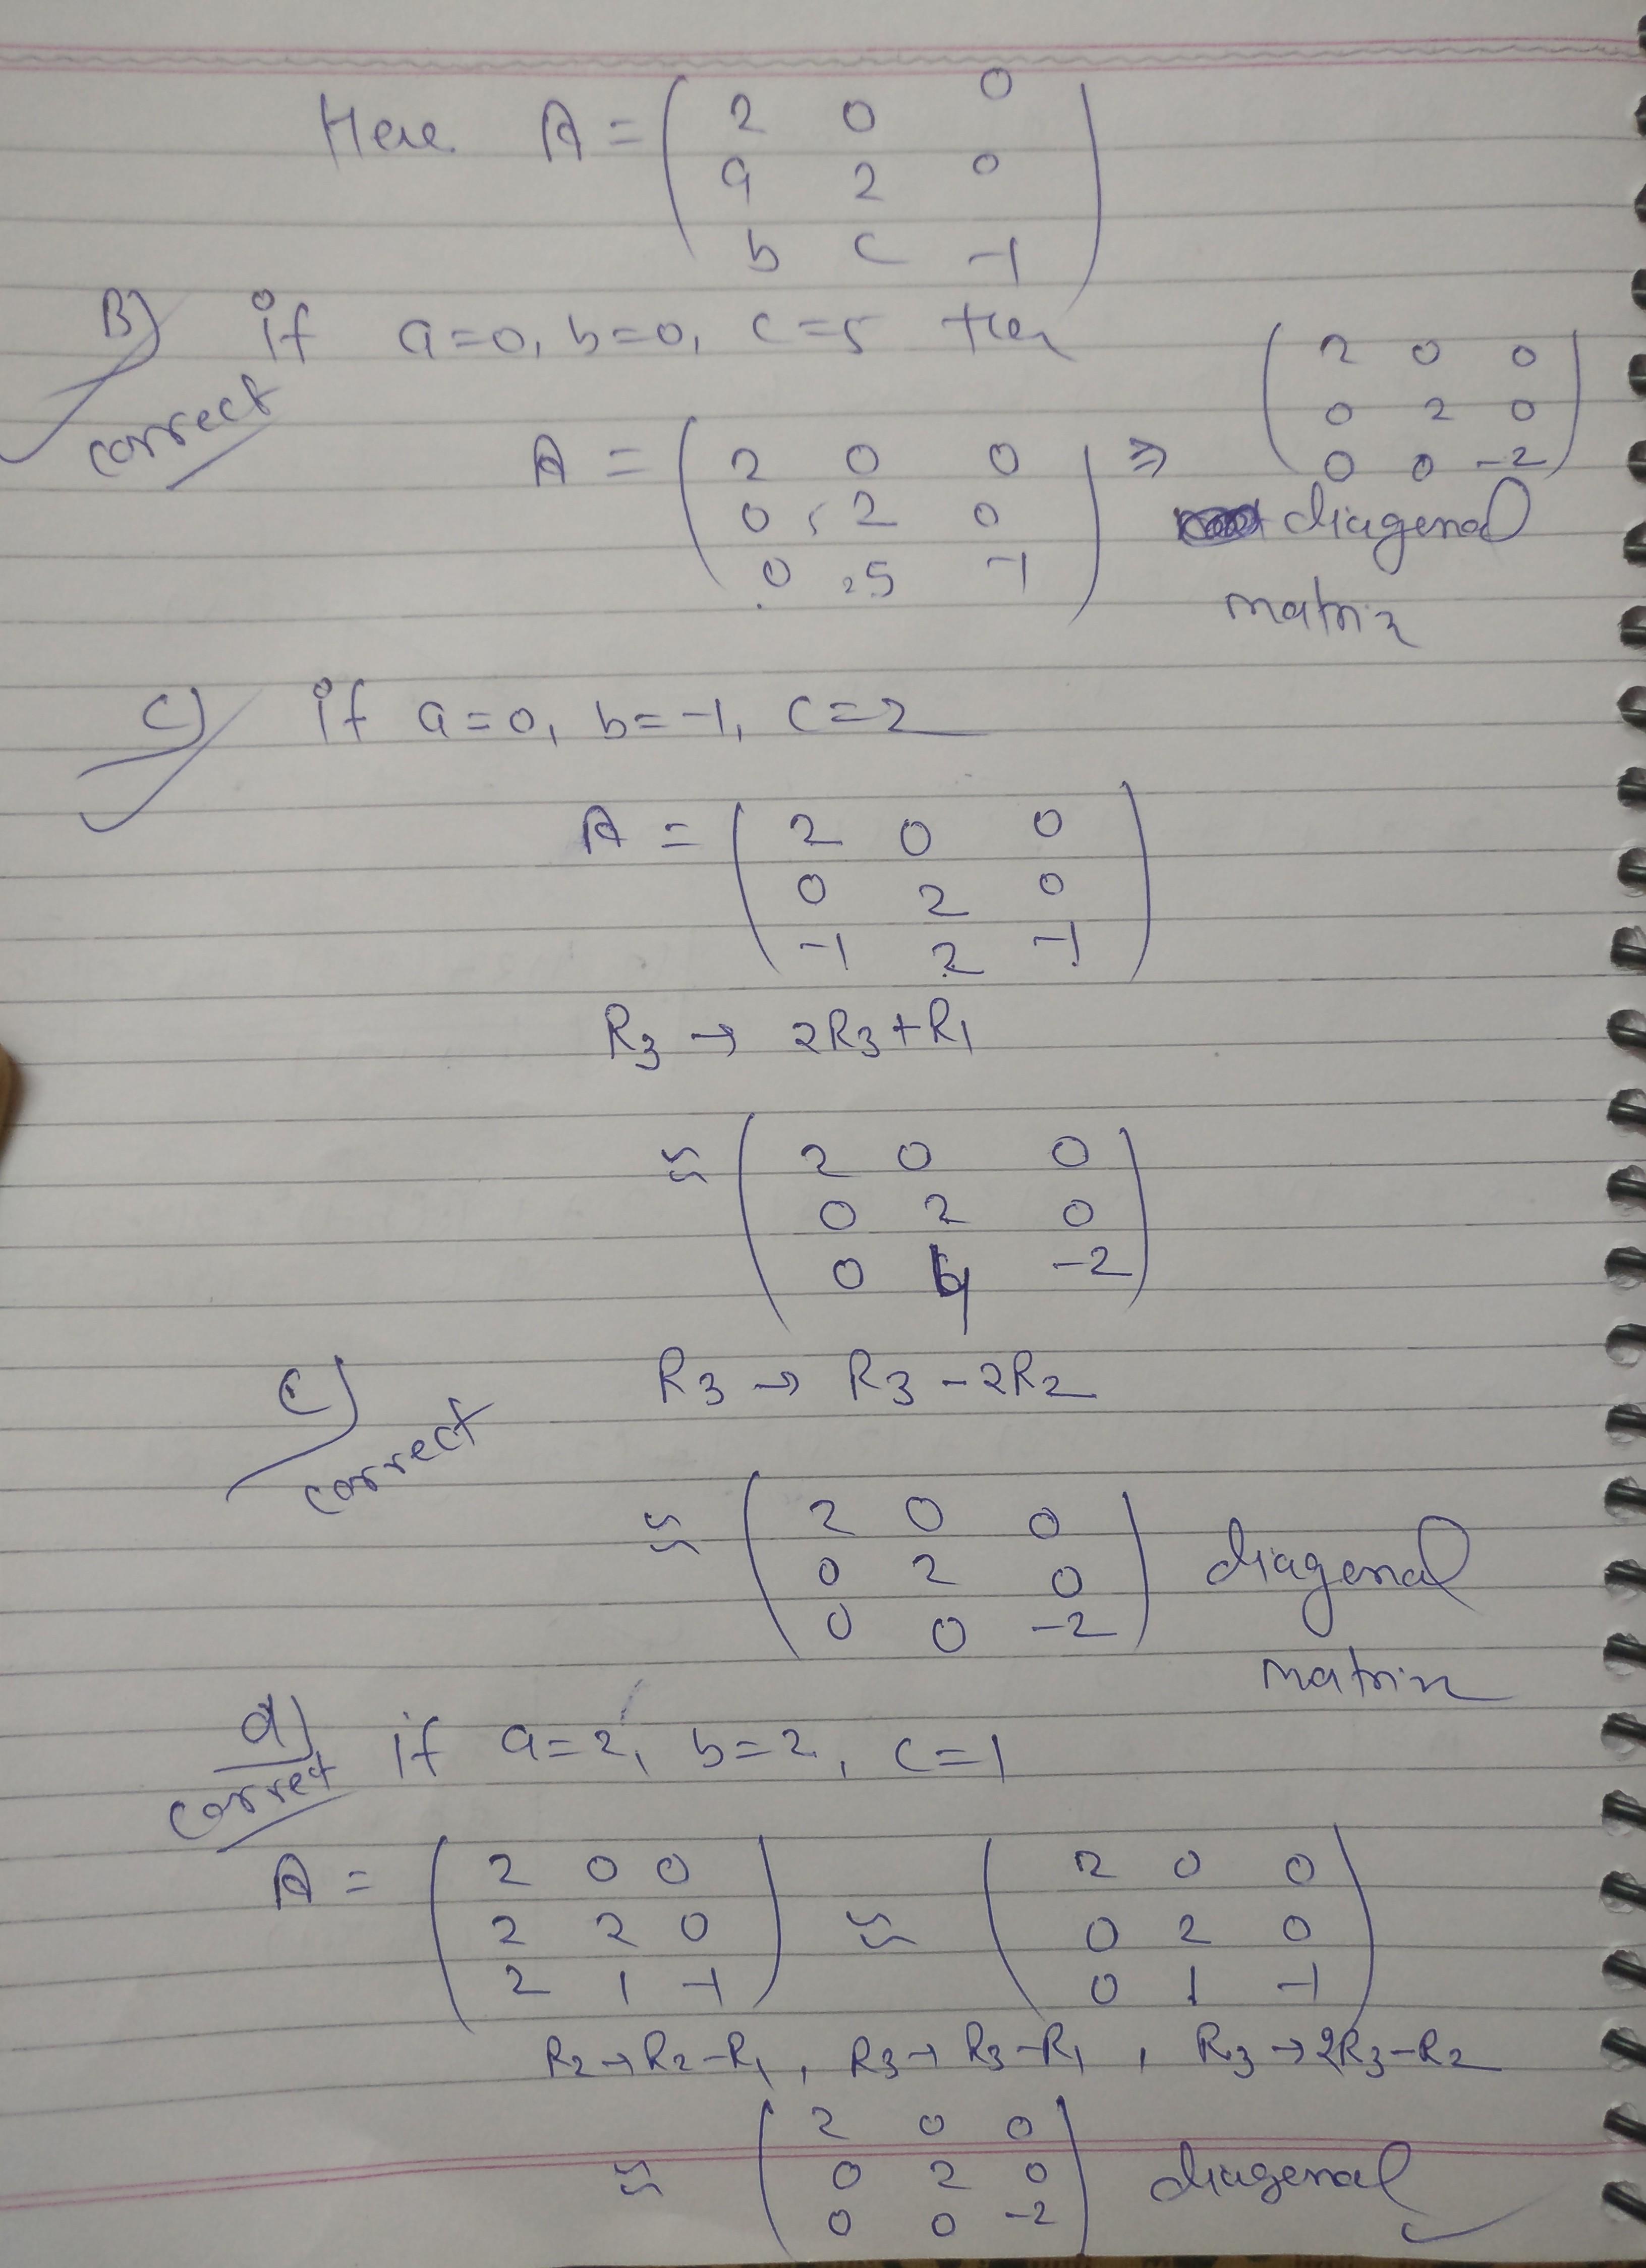 Here A = ( 2 0 0
a 2 0
b c -1 )
B) if a=0, b=0, c=5 then
correct
A = ( 2 0 0
0 2 0
0 5 -1 ) ⇒ ( 2 0 0
0 2 0
0 0 -2 )
diagenal
matrix
C) if a=0, b=-1, c=2
A = ( 2 0 0
0 2 0
-1 2 -1 )
R3 → 2R3+R1
≈ ( 2 0 0
0 2 0
0 4 -2 )
C) R3 → R3-2R2
correct
≈ ( 2 0 0
0 2 0
0 0 -2 ) diagenal
matrix
d) if a=2, b=2, c=1
correct
A = ( 2 0 0
2 2 0
2 1 -1 ) ≈ ( 2 0 0
0 2 0
0 1 -1 )
R2→R2-R1, R3→R3-R1, R3→2R3-R2
≈ ( 2 0 0
0 2 0
0 0 -2 ) diagenal